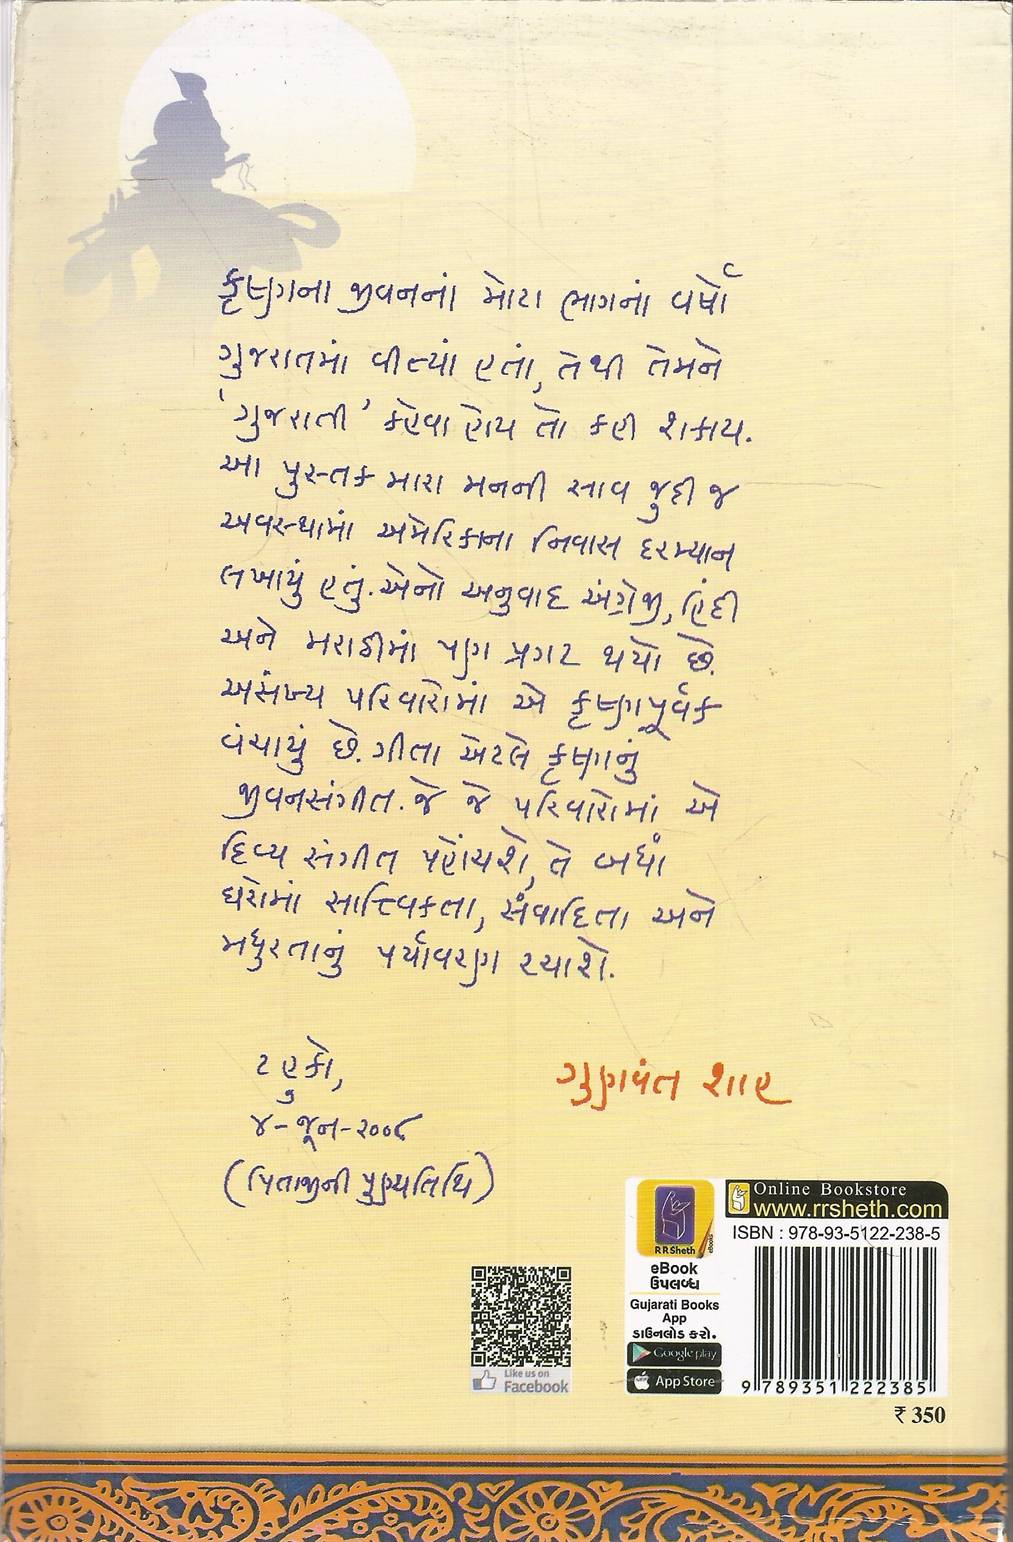 કૃષ્ણના જીવનનાં મોટા ભાગનાં વર્ષો
ગુજરાતમાં વીત્યાં હતાં, તેથી તેમને
'ગુજરાતી' કહેવા હોય તો કહી શકાય.
આ પુસ્તક મારા મનની સાવ જુદી જ
અવસ્થામાં અમેરિકાના નિવાસ દરમ્યાન
લખાયું હતું. એનો અનુવાદ અંગ્રેજી, હિંદી
અને મરાઠીમાં પણ પ્રગટ થયો છે.
અસંખ્ય પરિવારોમાં એ કૃષ્ણપૂર્વક
વંચાયું છે. ગીતા એટલે કૃષ્ણનું
જીવનસંગીત. જે જે પરિવારોમાં એ
દિવ્ય સંગીત પહોંચશે, તે બધાં
ઘરોમાં સાત્ત્વિકતા, સંવાદિતા અને
મધુરતાનું પર્યાવરણ રચાશે.
ટહુકો,
૪-જૂન-૨૦૦૮
(પિતાજીની પુણ્યતિથિ)
ગુણવંત શાહ
Online Bookstore
www.rrsheth.com
ISBN : 978-93-5122-238-5
R R Sheth
ebooks
eBook
ઉપલબ્ધ
Gujarati Books
App
ડાઉનલોડ કરો.
Google play
App Store
Like us on
Facebook
9 789351 222385
₹ 350